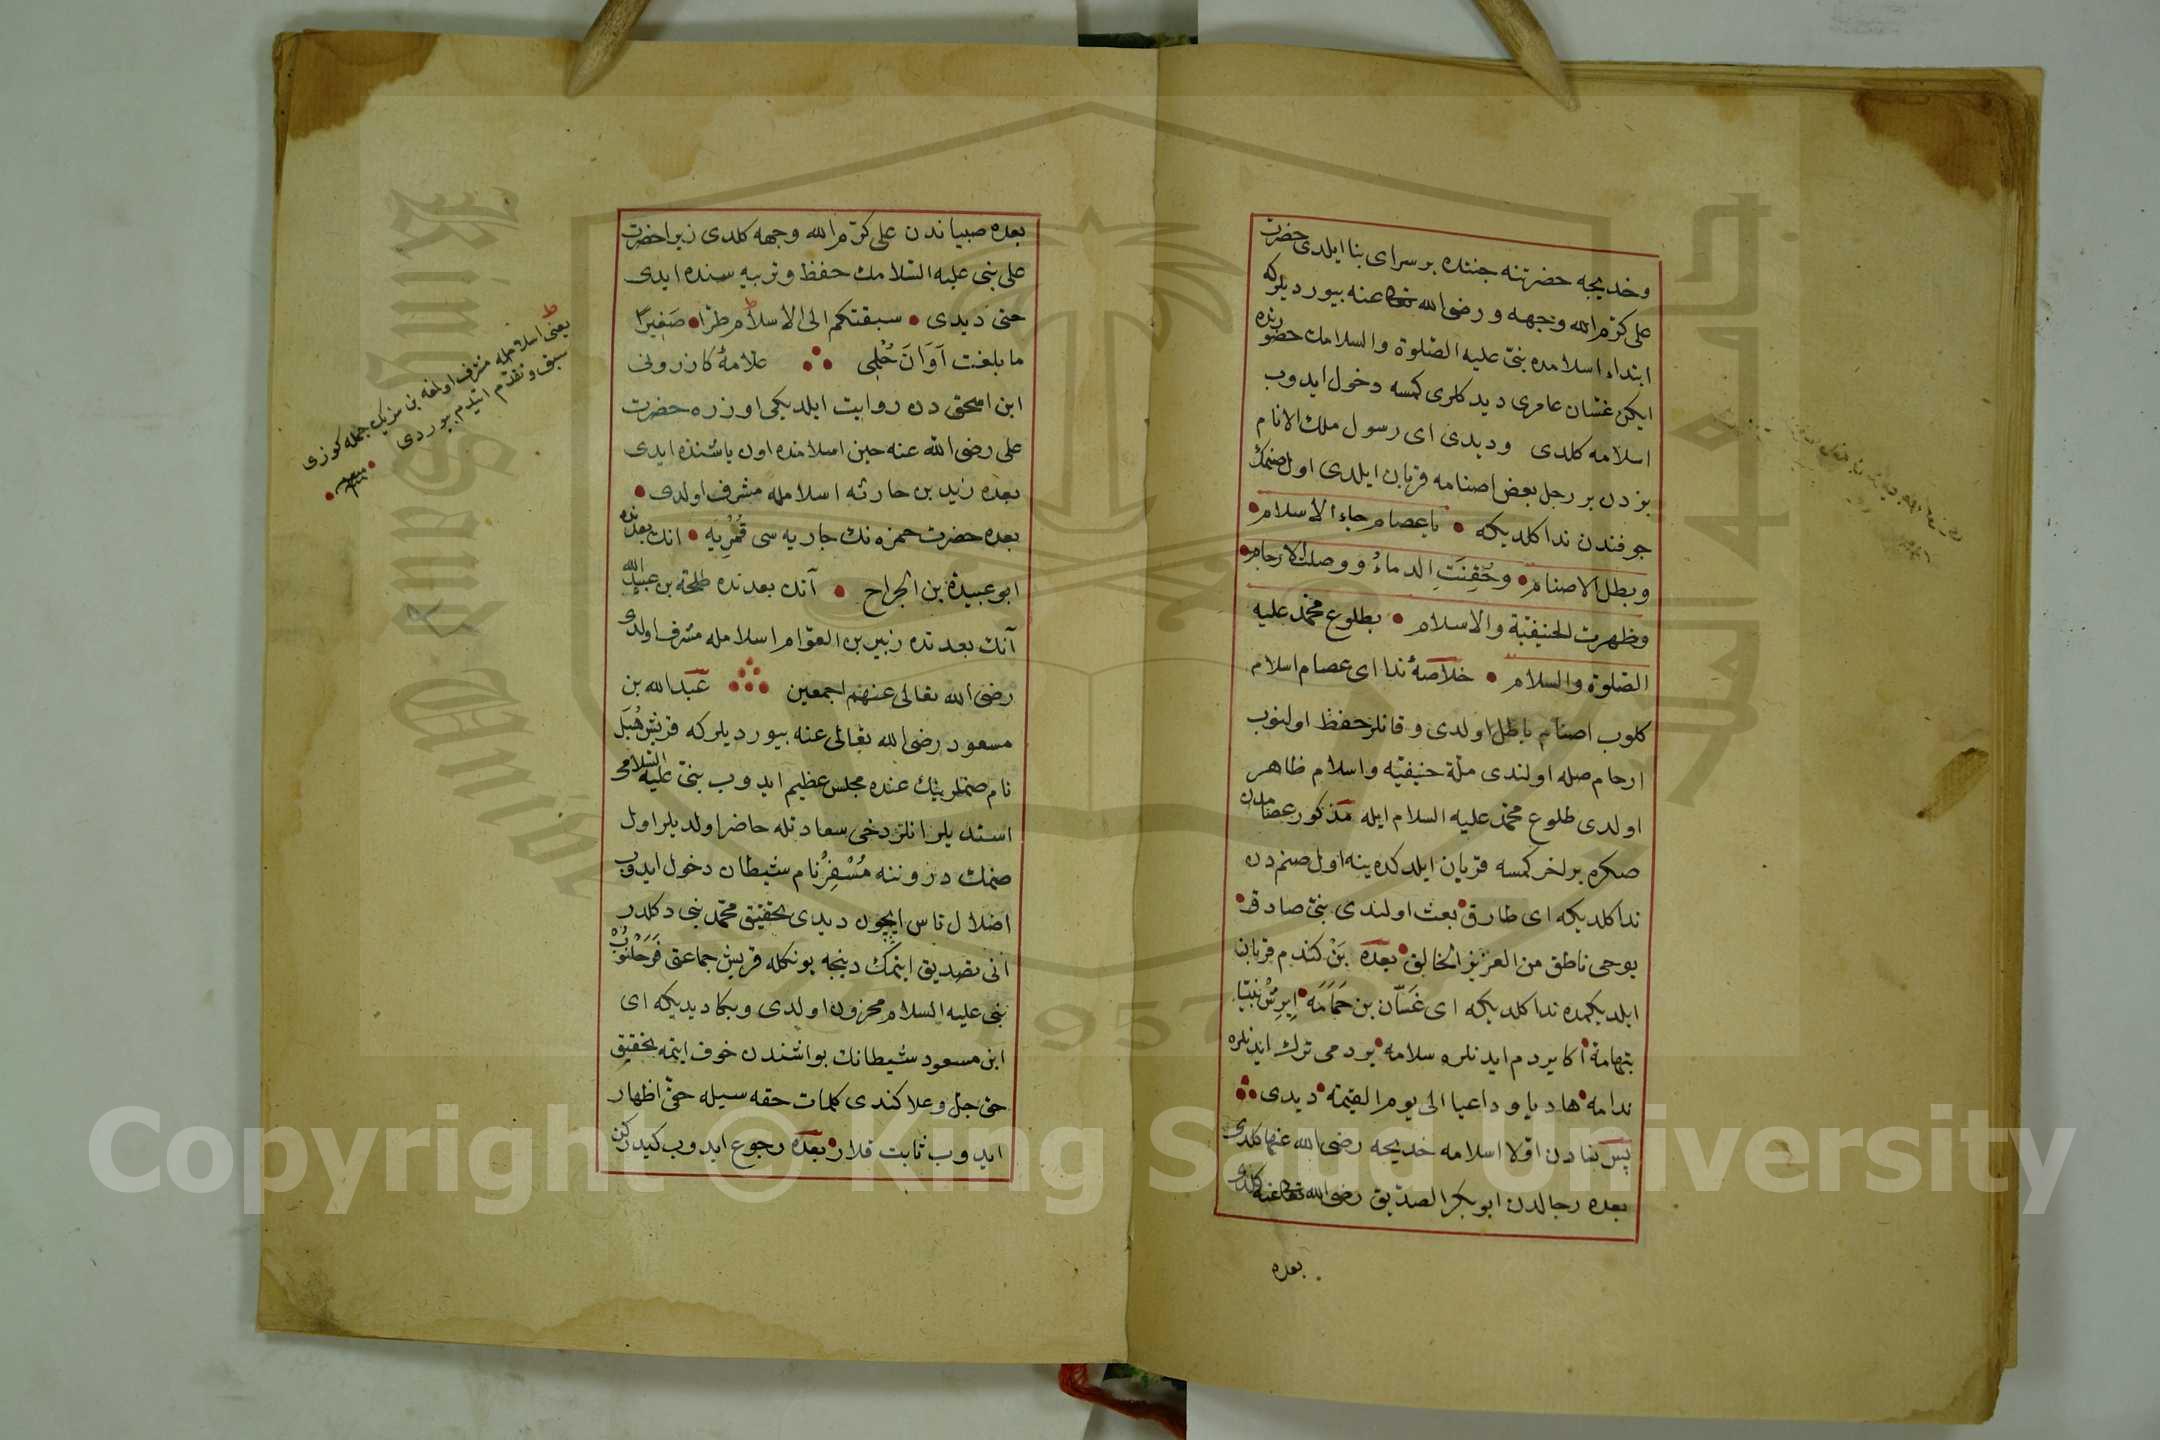 وخديجه حضرتنه جنتده برسراى بنا ايلدى حضرت
على كرّم الله وجهه ورضى الله تعالى عنه بيورديلركه
ابتداء اسلامده بنىّ عليه الصّلوة والسلامك حضورنده
ايكن غسّان عامرى ديدكلرى كمسه دخول ايدوب
اسلامه كلدى وديدى اى رسول ملك الانام
بزدن بر رجل بعض اصنامه قربان ايلدى اول صنمك
جوفندن ندا كلديكه • يا عصام جاء الاسلام •
وبطل الاصنام • وحُقِنَتِ الدماءُ ووصلت الارحام •
وظهرت الحنيفيّة والاسلام • بطلوع محمّد عليه
الصّلوة والسلام • خلاصهٔ ندا اى عصام اسلام
كلوب اصنام باطل اولدى وقانلر حفظ اولنوب
ارحام صله اولندى ملّة حنيفيّه واسلام ظاهر
اولدى طلوع محمّد عليه السلام ايله مذكور عصامدن
صكره بر اخر كمسه قربان ايلدكده ينه اول صنم دن
ندا كلديكه اى طارق • بعث اولندى بنىّ صادق •
بوحى ناطق من العزيز الخالق • بعده بَنْ كندم قربان
ايلديكمده ندا كلديكه اى غَسَّان بن حَمَامَه • اِيرِشْ نبيّا
بتهامة • اكا يردم ايدنلره سلامه • يردمى ترك ايدنلره
ندامه • هاديا وداعيا الى يوم القيمة • ديدى
پس نسادن اوّلا اسلامه خديجه رضى الله عنها كلدى
بعده رجالدن ابو بكر الصدّيق رضى الله تعالى عنه كلدى
بعده
بعده صبياندن على كرّم الله وجهه كلدى زيرا حضرت
على بنى عليه السّلامك حفظ وتربيه سنده ايدى
حتى ديدى • سبقتكم الى الاسلام طرّا • صَغيرًا
ما بلغت آوَانَ حُلْمِى علامهٔ كازرونى
ابن اسحق دن روايت ايلديكى اوزره حضرت
على رضى الله عنه حين اسلامنده اون ياشنده ايدى
بعده زيد بن حارثه اسلامله مشرف اولدى •
بعده حضرت حمزه نك جاريه سى قُمْرِيه • انك بعدنده
ابو عبيدة بن الجراح • آنك بعدنده طلحة بن عبيد الله
آنك بعدنده زبير بن العوّام اسلامله مشرف اولدى
رضى الله تعالى عنهم اجمعين عبد الله بن
مسعود رضى الله تعالى عنه بيورديلركه قريش هُبَل
نام صنملرينك عنده مجلس عظيم ايدوب بنىّ عليه السّلامى
استديلر انلر دخى سعادتله حاضر اولديلر اول
صنمك دروننه مُسْفِرْ نام شيطان دخول ايدوب
اضلال ناس ايچون ديدى تحقيق محمّد بنى دكلدر
انى تصديق ايتمك دينجه بونكله قريش جماعتى فَرَحْلَنُوبْ
نبى عليه السلام محزون اولدى وبكا ديديكه اى
ابن مسعود شيطانك بو اشندن خوف ايتمه تحقيق
حق جلّ وعلا كندى كلمات حقه سيله حقّ اظهار
ايدوب ثابت قلار • بعده رجوع ايدوب كيدركن
يعنى اسلامله مشرف اولمغه بن سزيك جمله كوزى
سبق وتقدّم ايتدم بيوردى •